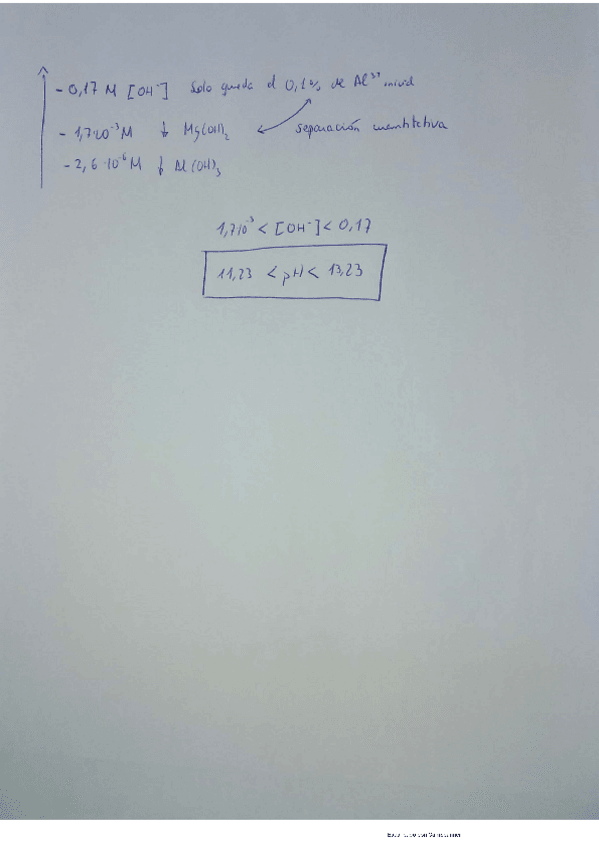 - 0,17 M [OH⁻] Solo queda el 0,1% de Al³⁺ inicial
- 1,7·10⁻³ M ↓ Mg(OH)₂ ← separación cuantitativa
- 2,6·10⁻⁶ M ↓ Al(OH)₃
1,7·10⁻³ < [OH⁻] < 0,17
11,23 < pH < 13,23